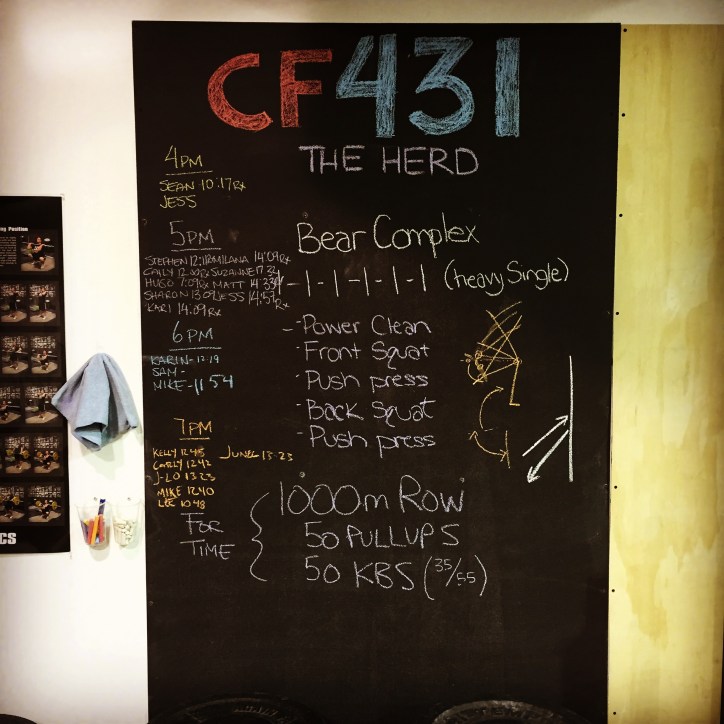 CF431
THE HERD
4PM
SEAN-10:17Rx
JESS
5PM
MILANA 14:09Rx
SUZANNE 17:34
HUGO 7:09Rx MATT 14:33
SHARON 13:09 JESS 14:57Rx
KARI 14:09Rx
6PM
KARIN-12:19
SAM-
MIKE-11 54
7PM
KELLY 12 45
CARLY 12 42
J-LO 13 23
MIKE 12 40
LEE 10 48
13-23
Bear Complex
-1-1-1-1-1 (heavy Single)
-Power Clean
-Front Squat
-Push press
-Back Squat
-Push press
FOR
TIME
1000m Row
50 PULLUPS
50 KBS (35/55)
ng Position
CS